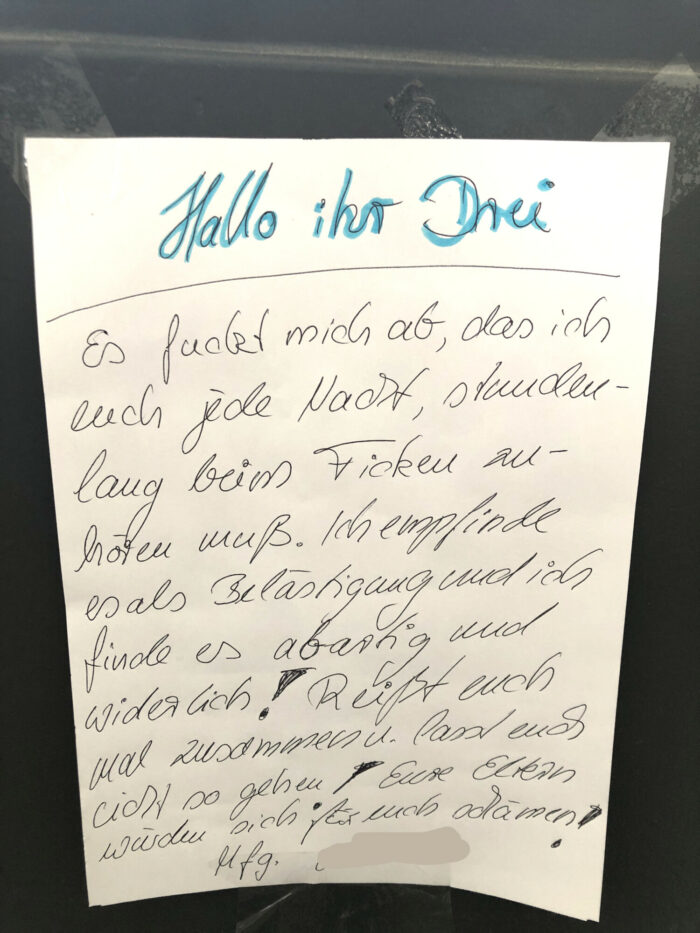 Hallo ihr Drei
Es fuckt mich ab, das ich
euch jede Nacht, stunden-
lang beim Ficken zu-
hören muß. Ich empfinde
es als Belästigung und ich
finde es abartig und
widerlich! Reißt euch
mal zusammen u. lasst euch
nicht so gehen! Eure Eltern
würden sich für euch schämen!
Mfg.